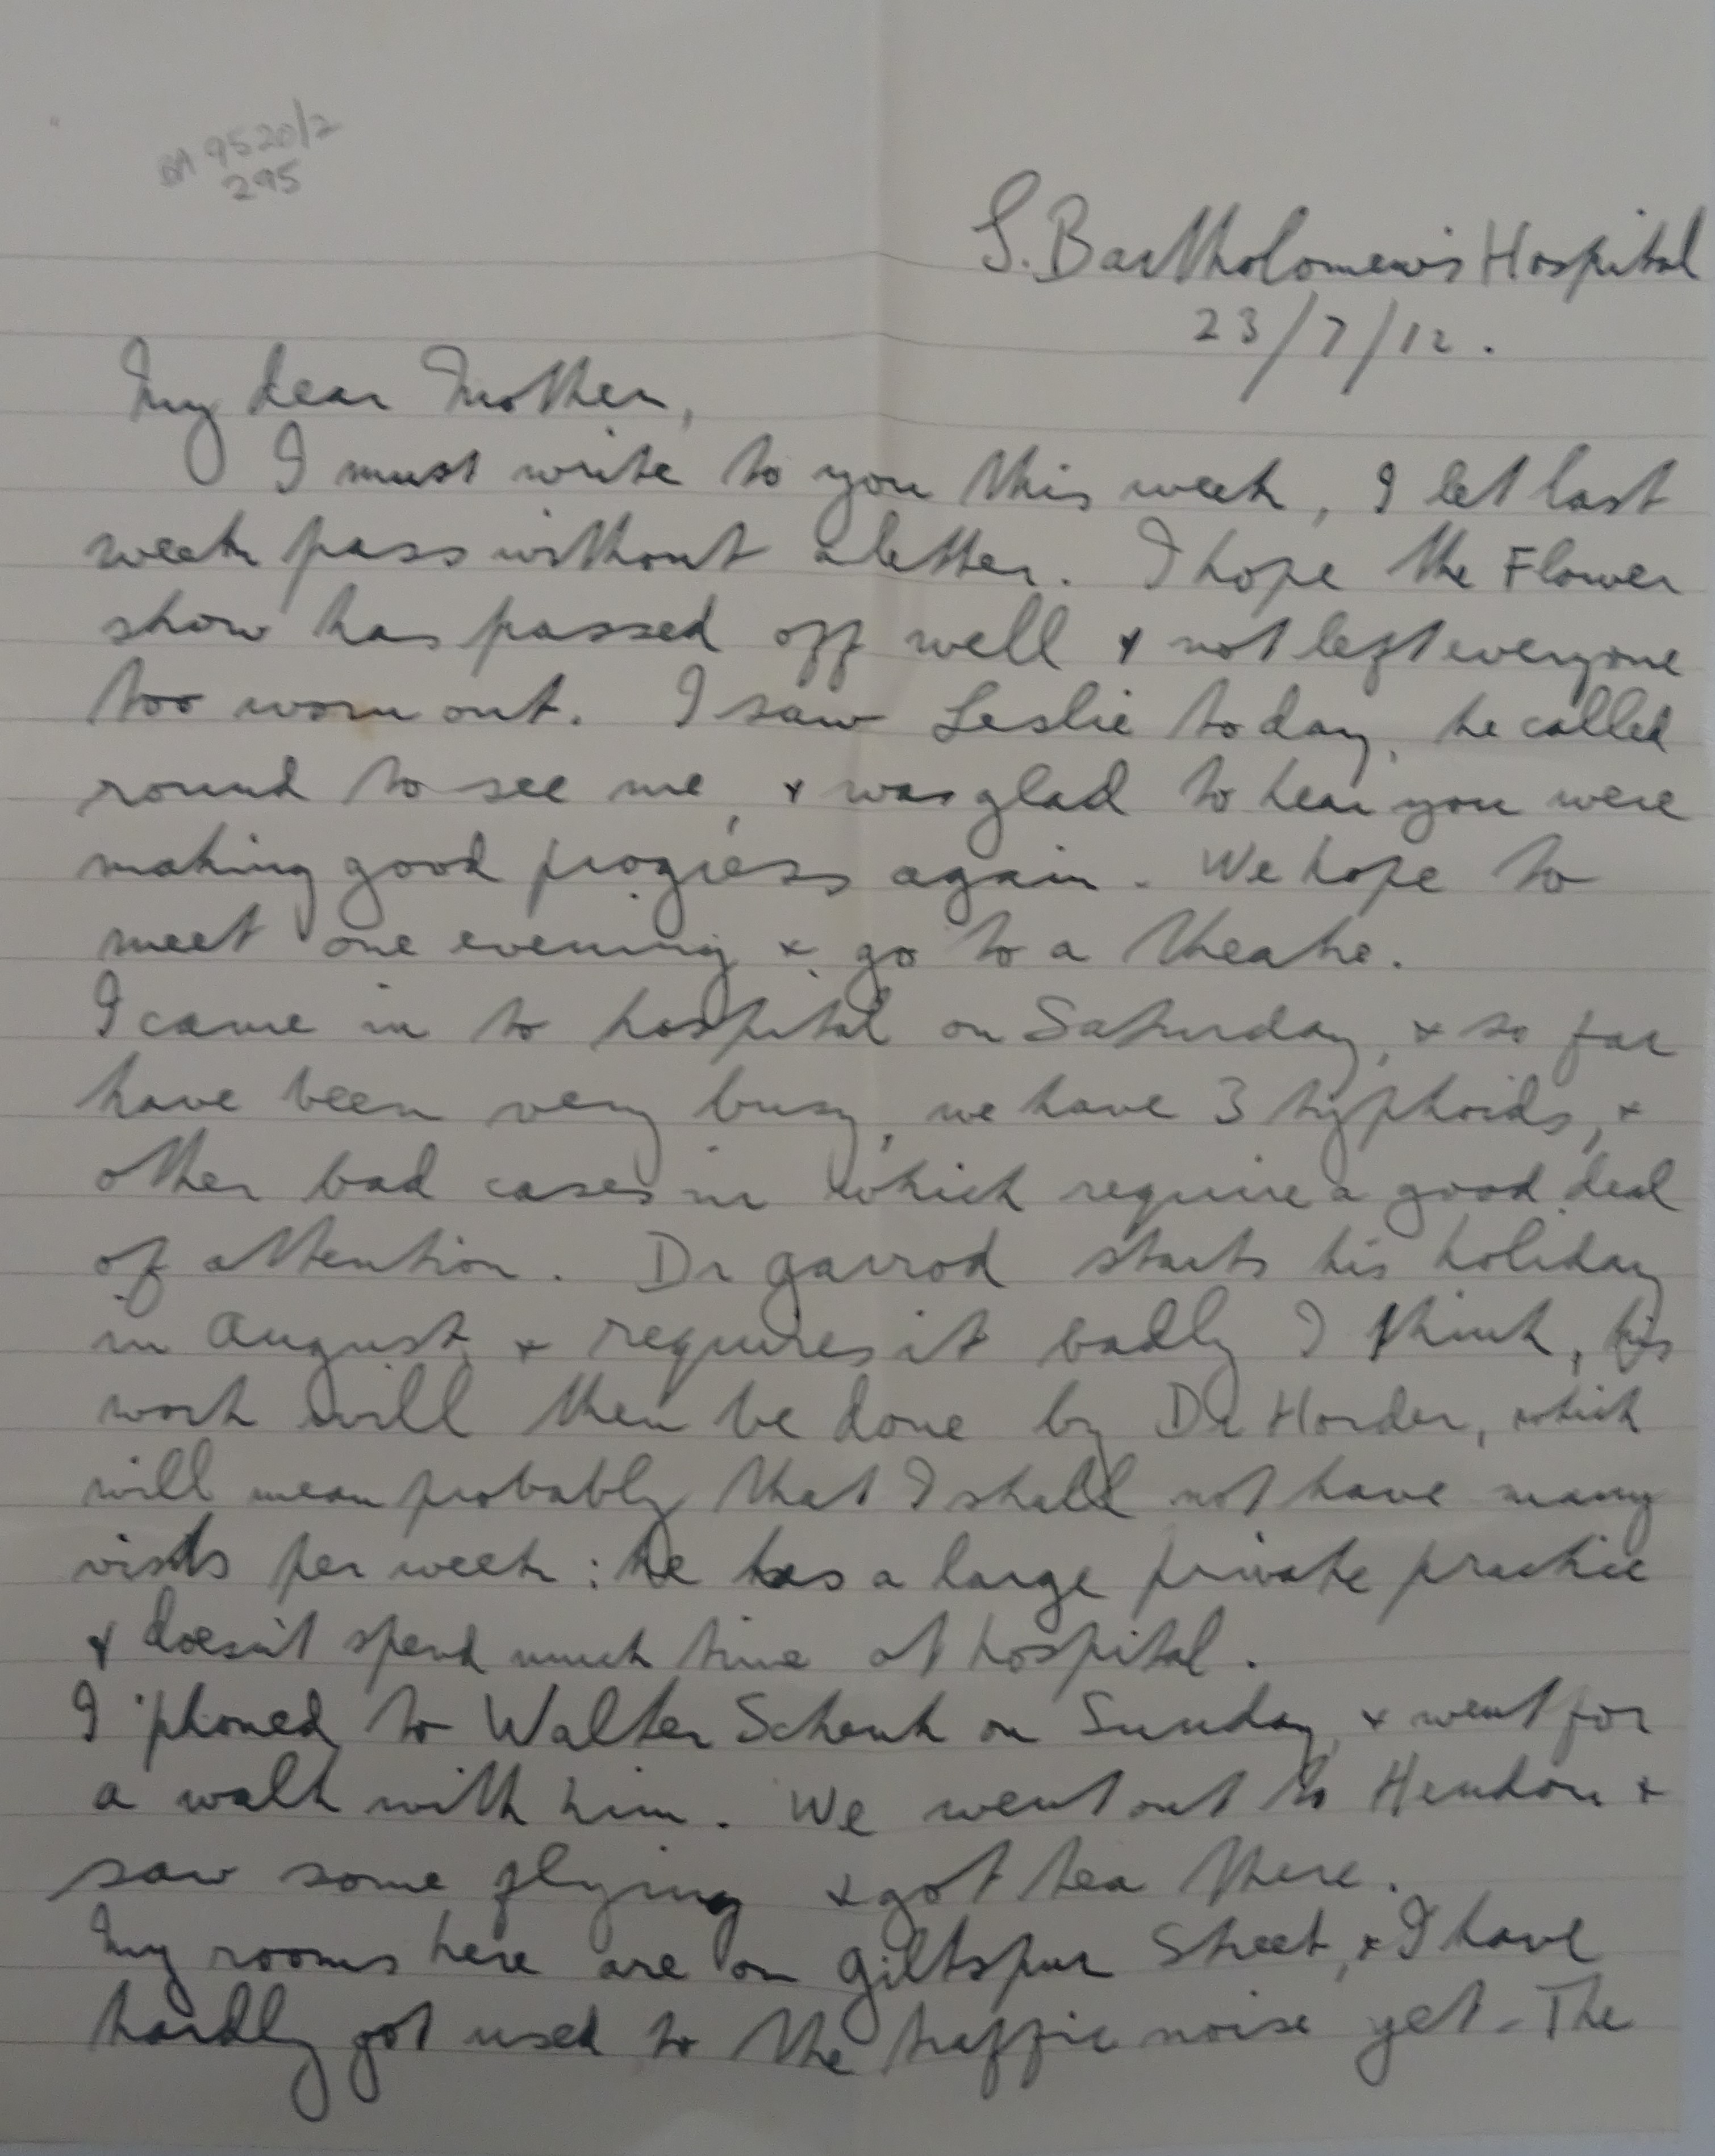 BA 9520/2
295
S. Bartholomew's Hospital
23/7/12.
My dear Mother,
I must write to you this week, I let last
week pass without a letter. I hope the Flower
show has passed off well & not left everyone
too worn out. I saw Leslie today, he called
round to see me, & was glad to hear you were
making good progress again. We hope to
meet one evening & go to a theatre.
I came in to hospital on Saturday, & so far
have been very busy, we have 3 typhoids, &
other bad cases in which require a good deal
of attention. Dr Garrod starts his holiday
in August & requires it badly I think, his
work will then be done by Dr Horder, which
will mean probably that I shall not have many
visits per week: he has a large private practice
& doesn't spend much time at hospital.
I 'phoned to Walter Schenk on Sunday & went for
a walk with him. We went out to Hendon &
saw some flying & got tea there.
My rooms here are on Giltspur Street, & I have
hardly got used to the traffic noise yet - The